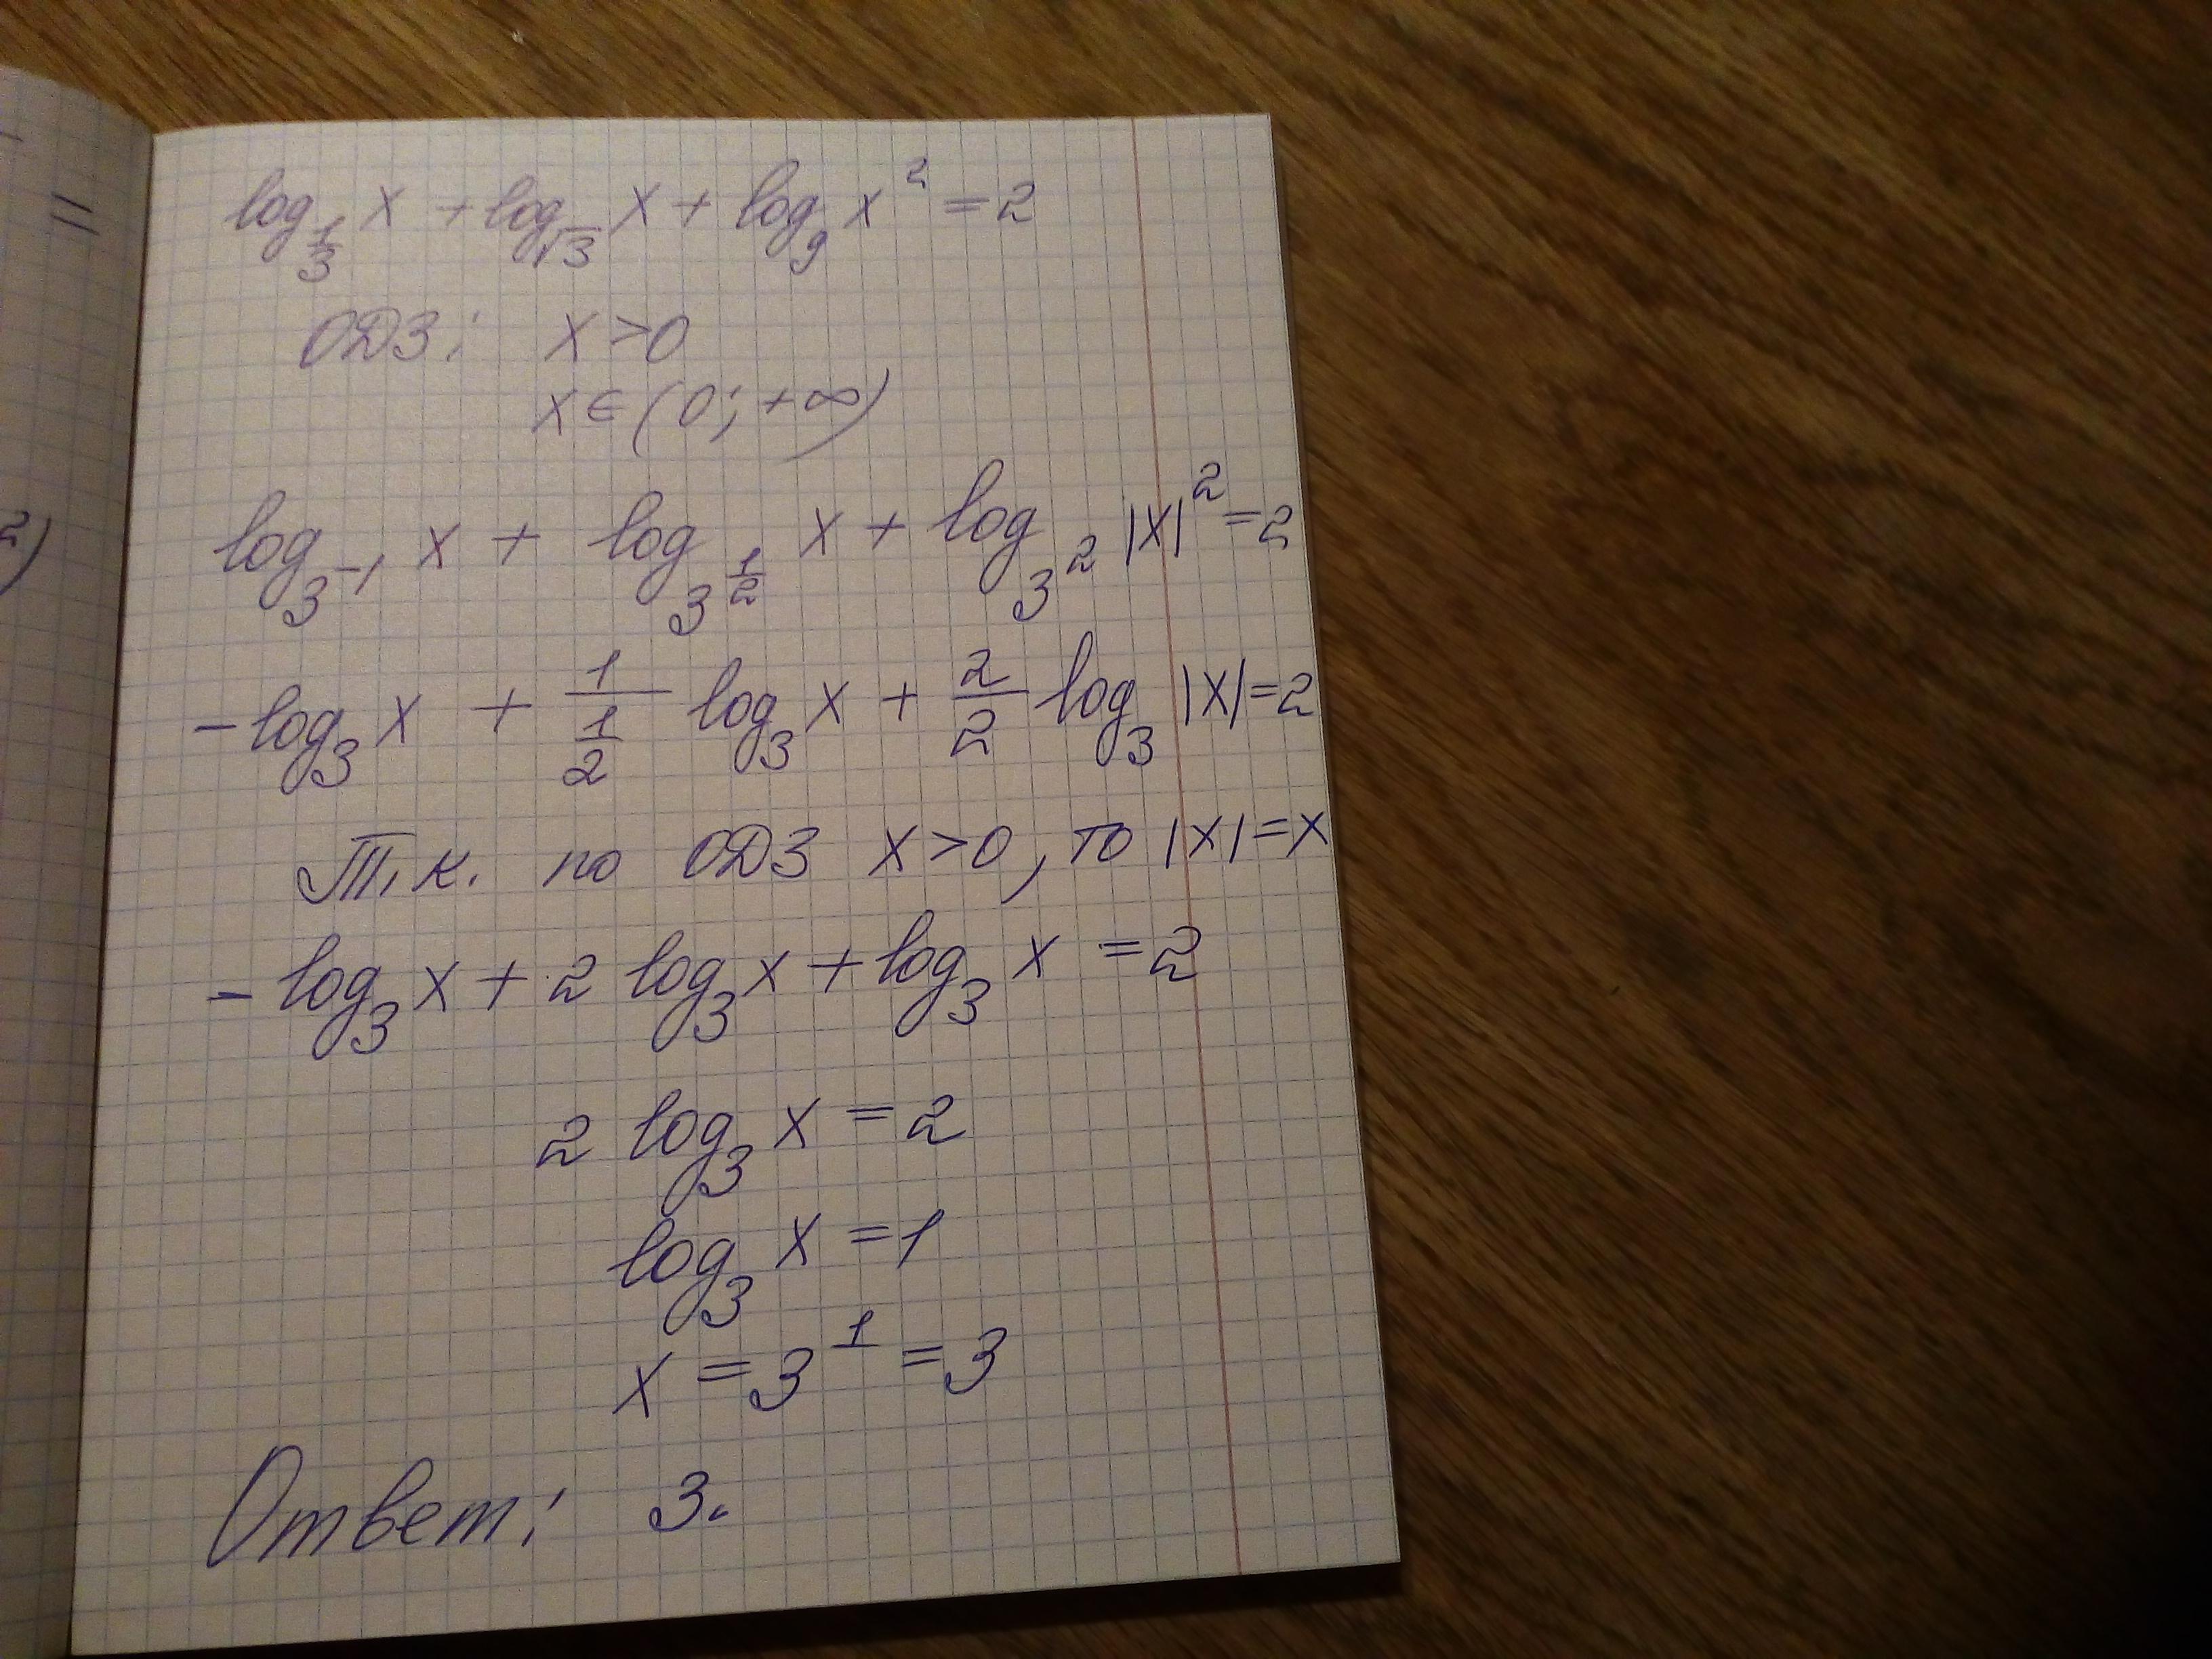 =
2)
log_{\frac{1}{3}} x + log_{\sqrt{3}} x + log_9 x^2 = 2
ОДЗ: x > 0
x ∈ (0; +∞)
log_{3^{-1}} x + log_{3^{\frac{1}{2}}} x + log_{3^2} |x|^2 = 2
-log_3 x + \frac{1}{\frac{1}{2}} log_3 x + \frac{2}{2} log_3 |x| = 2
Т.к. по ОДЗ x > 0, то |x| = x
- log_3 x + 2 log_3 x + log_3 x = 2
2 log_3 x = 2
log_3 x = 1
x = 3^1 = 3
Ответ: 3.